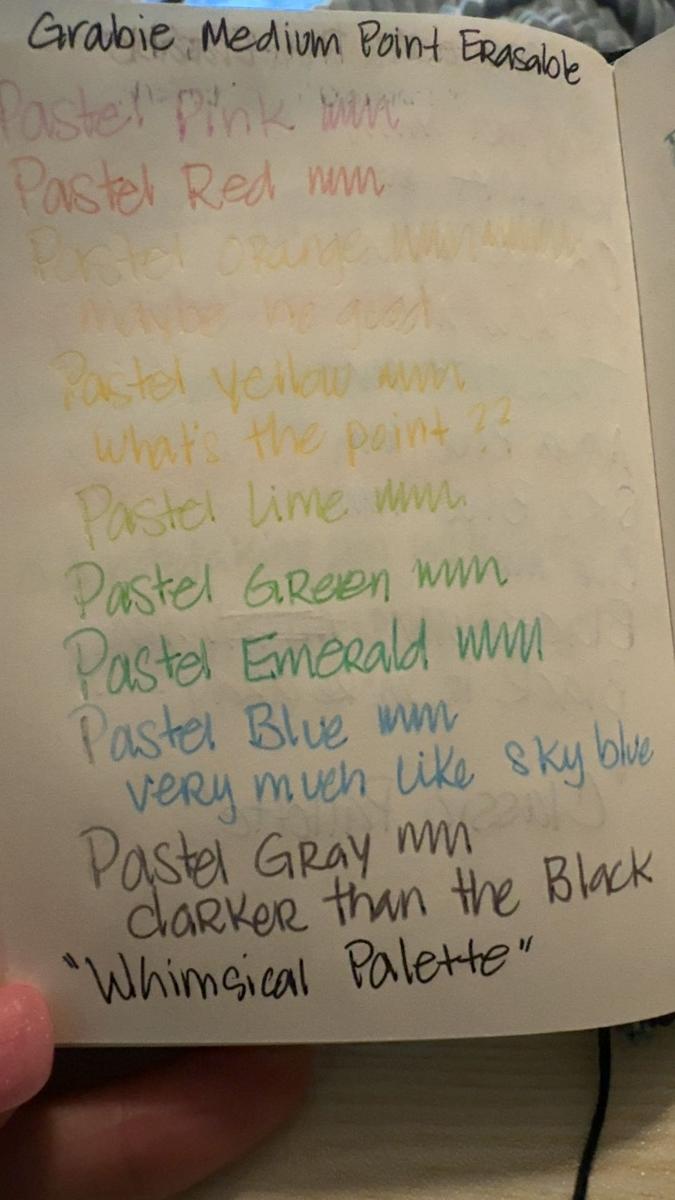 Grabie Medium Point Erasable
Pastel Pink
Pastel Red
Pastel Orange
maybe no good
Pastel Yellow
what's the point ??
Pastel Lime
Pastel Green
Pastel Emerald
Pastel Blue
very much like sky blue
Pastel Gray
darker than the Black
"Whimsical Palette"